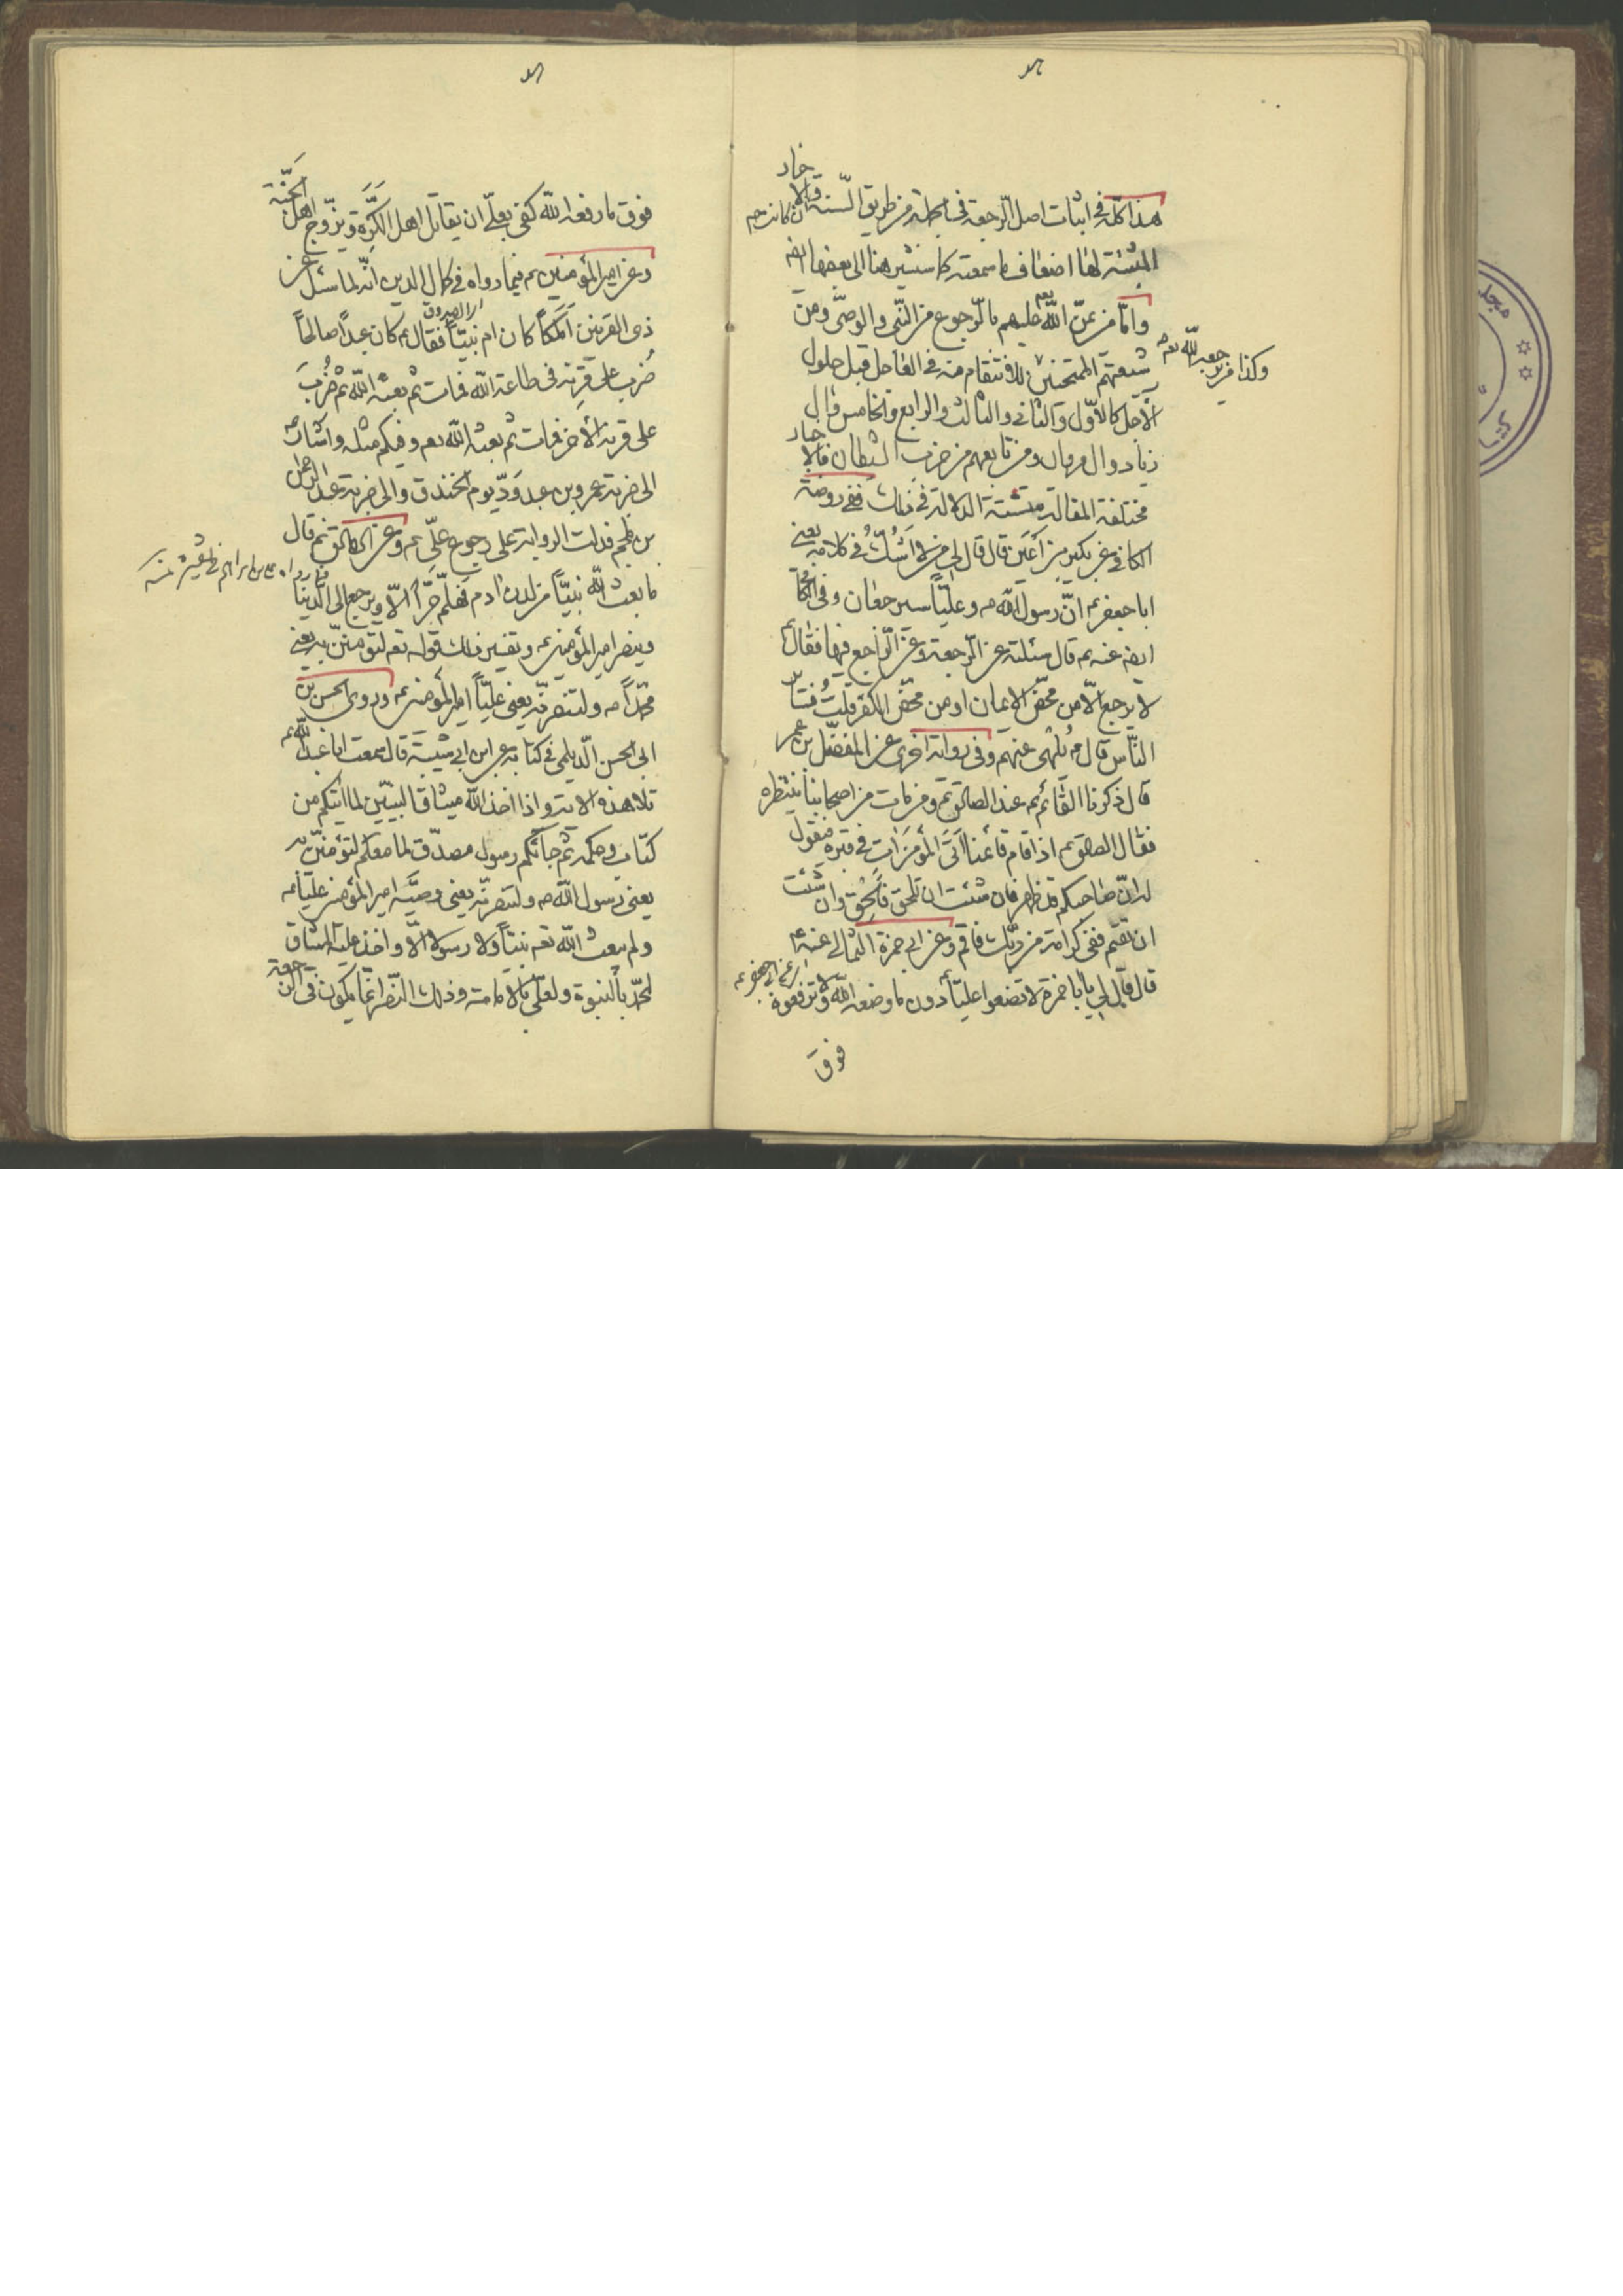 هذا كله في اثبات اصل الرجعة في الجملة من طريق السنة والاخبار
المثبتة لها اضعاف ما سمعته كما سنشير هنا الى بعضها ايضه
واما من يمن الله يعم عليهم بالرجوع من النبي والوصي ومن
شيعتهم الممتحنين للانتقام منه في العاجل قبل حلول
الآجل كالاول والثاني والثالث والرابع والخامس وال
زياد وال مروان ومن تابعهم من حزب الشيطان فالاخبار
مختلفة المقالة متشتتة الدلالة في ذلك ففي روضة
الكافي عن بكير بن اعين قال قال لي من لا اشك في كلامه يعني
ابا جعفر عم ان رسول الله ص وعليا سيرجعان وفي
ايضه عنه عم قال سئلته عن الرجعة وعن الراجع فيها فقال عم
لا يرجع الا من محض الايمان او من محض الكفر قلت فسائر
الناس قال عم يلهى عنهم وفي رواية اخرى عن المفضل بن عمر
قال ذكرنا القائم عم عند الصادق عم ومن مات من اصحابنا ينتظره
فقال الصادق عم اذا قام قائمنا اتى المؤمن آت في قبره فيقول
له ان صاحبكم قد ظهر فان شئت ان تلحق فالحق وان شئت
ان تقم ففي كرامة من ربك فاقم وعن ابي حمزة الثمالي
عن ابي جعفر عم
قال قال لي يا با حمزة لا تضعوا عليا دون ما وضعه الله ولا ترفعوه
فوق
وكذا من يرجعه الله يعم
فوق ما رفعه الله كفى بعلي ان يقاتل اهل الكرة ويزوج اهل الجنة
وعن امير المؤمنين عم فيما رواه في كمال الدين انه لما سئل عن
ذي القرنين املكا كان ام نبيا فقال عم كان عبدا صالحا
ضرب على قرنه في طاعة الله فمات ثم بعثه الله ثم ضرب
على قرنه الآخر فمات ثم بعثه الله يعم وفيكم مثله واشار
الى ضربة عمرو بن عبد ود يوم الخندق والى ضربة عبد الرحمن
بن ملجم فدلت الرواية على رجوع علي عم وعن الصادق عم قال
فيما رواه علي بن ابراهيم في تفسيره
ما بعث الله نبيا من لدن ادم فهلم جرا الا ويرجع الى الدنيا
وينصر امير المؤمنين عم وتفسير ذلك قوله تعه لتؤمنن به يعني
محمدا ص ولتنصرنه يعني عليا امير المؤمنين عم وروى الحسن بن
ابي الحسن الديلمي في كتابه عن ابن ابي شيبة قال سمعت ابا عبد الله عم
تلا هذه الاية واذا اخذ الله ميثاق النبيين لما اتيتكم من
كتاب وحكمة ثم جائكم رسول مصدق لما معكم لتؤمنن به
يعني رسول الله ص ولتنصرنه يعني وصيه امير المؤمنين عليا عم
ولم يبعث الله تعه نبيا ولا رسولا الا واخذ عليه الميثاق
لمحمد بالنبوة ولعلي بالامامة وذلك النصر انما يكون في الرجعة